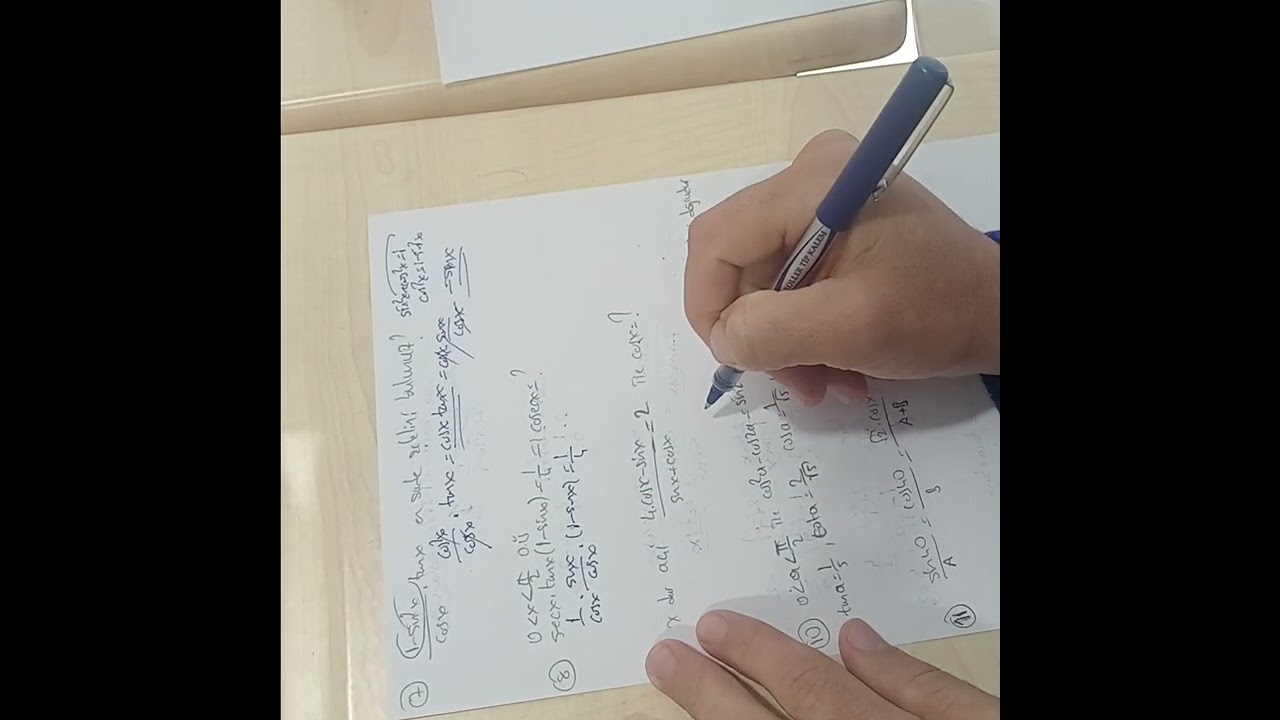 7 (1-sin²x)/cosx . tanx en sade şeklini bulunuz?
sin²x+cos²x=1
cos²x=1-sin²x
cos²x/cosx . tanx = cosx.tanx = cosx.sinx/cosx = sinx
8 0<x<π/2 o.ü
secx.tanx(1-sinx)=1/4 =) cosecx=?
1/cosx . sinx/cosx . (1-sinx)=1/4
x dar açı 4.cosx-sinx/sinx+cosx=2 ise cotx=?
10 0<a<π/2 ise cos²a-cos2a=sin²
tana=1/ , cota=2/√5 cosa=1/√5
11 sin40/A = cos40/B = √2.cosx/A+B
ROLLER TİP KALEM